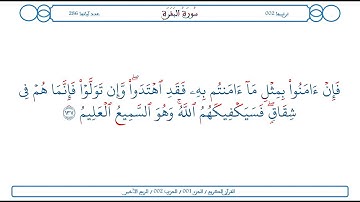 ترتيبها 002 سورة البقرة عدد آياتها 286
فَإِنْ ءَامَنُوا۟ بِمِثْلِ مَآ ءَامَنتُم بِهِۦ فَقَدِ ٱهْتَدَوا۟ ۖ وَّإِن تَوَلَّوْا۟ فَإِنَّمَا هُمْ فِى
شِقَاقٍ ۖ فَسَيَكْفِيكَهُمُ ٱللَّهُ ۚ وَهُوَ ٱلسَّمِيعُ ٱلْعَلِيمُ ١٣٧
القرآن الكريم / الجزء 001 / الحزب 002 / الربع الأخير